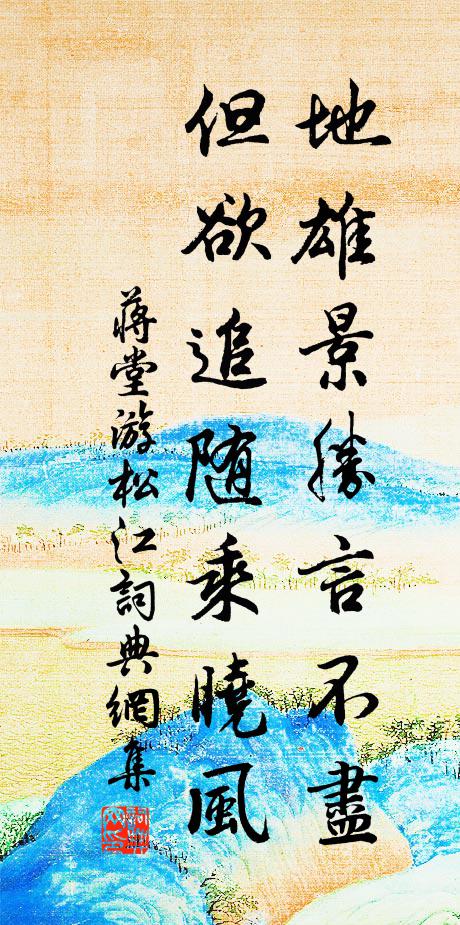 地雄景勝言不盡
但欲追随乘曉風
蔣堂游松江詞典網集